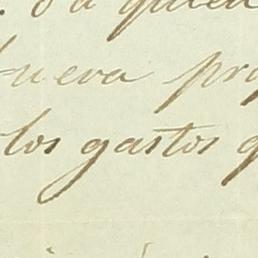 á quien
nueva pro
los gastos q